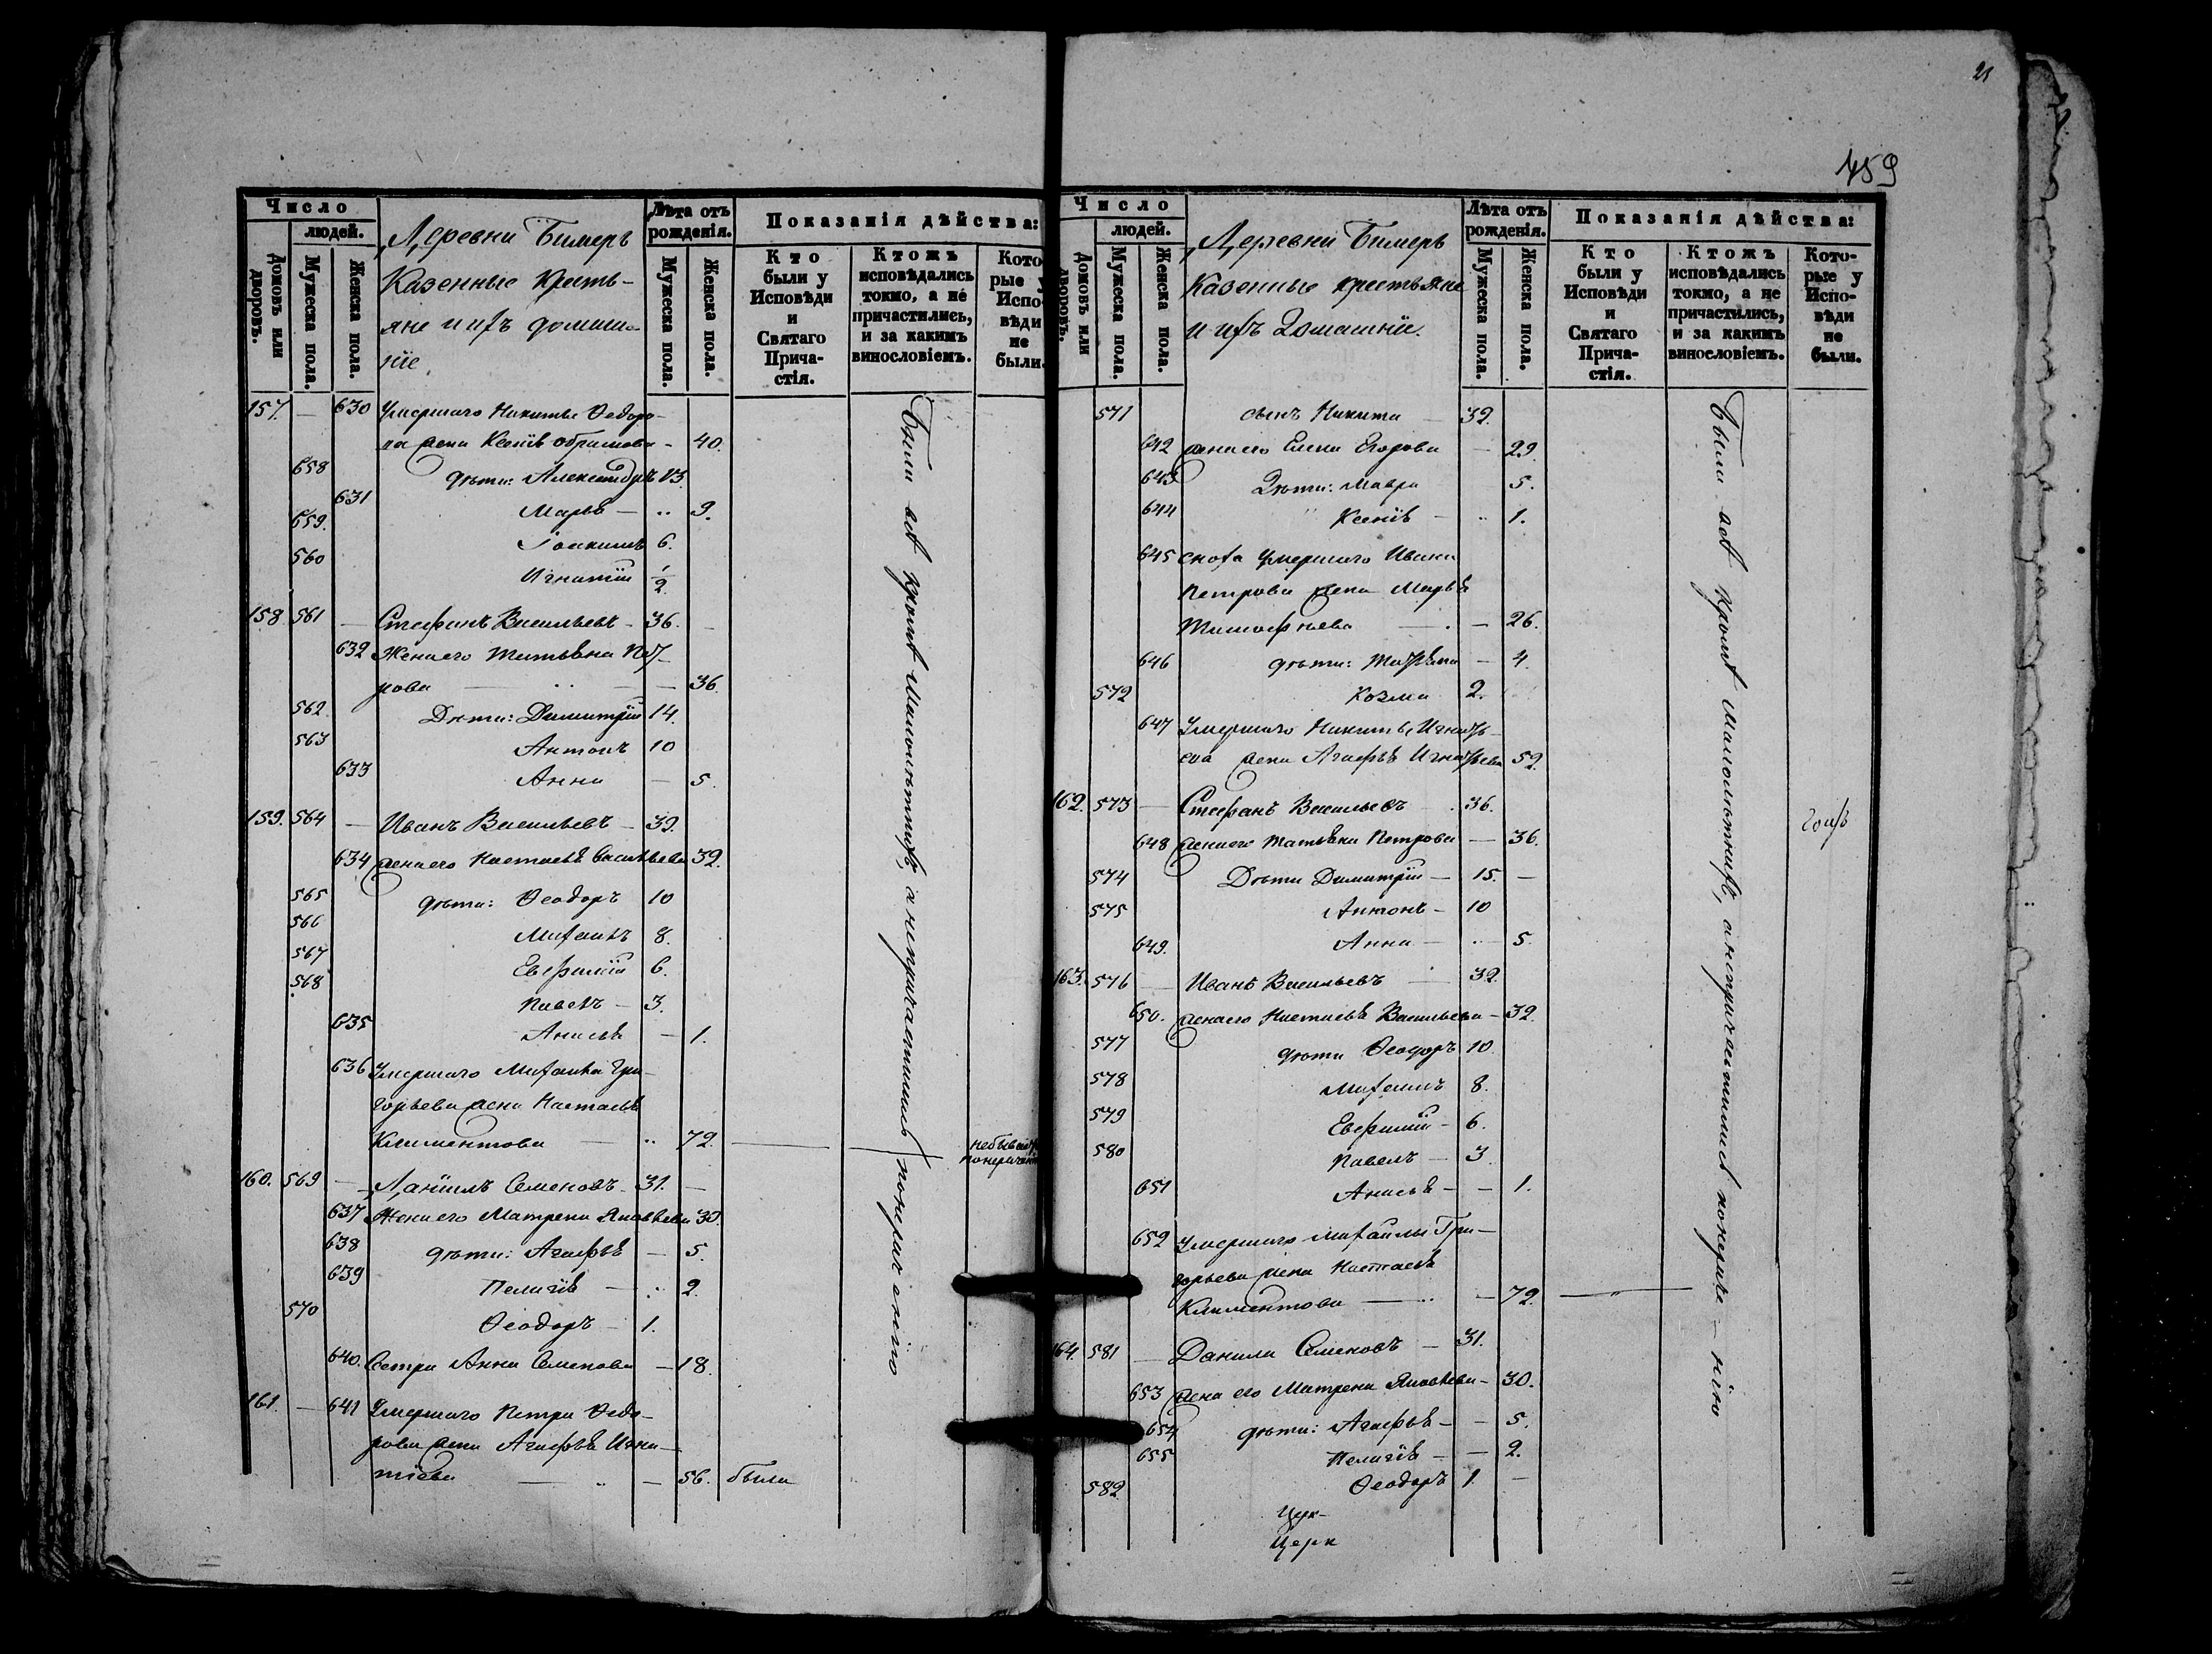 21
459
Число
людей.
Домовъ или дворовъ.
Мужеска пола.
Женска пола.
Деревни Бимеръ
Казенные Кресть-
яне и ихъ домаш-
ніе.
Лѣта отъ рожденія.
Мужеска пола.
Женска пола.
Показанія дѣйства:
Кто были у Исповѣди и Святаго Прича-стія.
Ктожъ исповѣдались токмо, а не причастились, и за какимъ винословіемъ.
Кото-рые у Испо-вѣди не были.
157. — 630 Умершаго Никиты Ѳедоро-
ва жена Ксенія - 40.
658 дѣти: Александръ 13.
631 Марья — 9.
659. Іоакимъ 6.
560 Игнатій 1/2
158. 561 — Стефанъ Васильевъ - 36. -
632 Жена его Татьяна Пет-
рова — 36.
562. Дѣти: Димитрій 14.
563 Антонъ 10
633 Анна — 5.
159. 564 — Иванъ Васильевъ - 39.
634 жена его Настасья Васильева 32.
565 дѣти: Ѳеодоръ 10
566 Михаилъ 8.
567 Евфимій 6.
568 Павелъ - 3.
635 Анисья — 1.
636 Умершаго Михаила Гри-
горьева жена Настасья
Климентова — 72.
160. 569 — Даніилъ Семеновъ - 31. —
637 Жена его Матрена Яковлева 30.
638 дѣти: Агафья — 5.
639 Пелагія — 2.
570 Ѳеодоръ - 1.
640. Сестра Анна Семенова — 18.
161. — 641 Умершаго Петра Ѳедо-
рова жена Агафья Игна-
тіева — 56. была
Были всѣ кромѣ малолѣтнихъ, а не причастились
Число
людей.
Домовъ или дворовъ.
Мужеска пола.
Женска пола.
Деревни Бимеръ
Казенные крестьяне
и ихъ домашніе.
Лѣта отъ рожденія.
Мужеска пола.
Женска пола.
Показанія дѣйства:
Кто были у Исповѣди и Святаго Прича-стія.
Ктожъ исповѣдались токмо, а не причастились, и за какимъ винословіемъ.
Кото-рые у Испо-вѣди не были.
571 сынъ Никита 32.
642 жена его Елена Егорова — 29.
643 Дѣти: Мавра 5.
644 Ксенія — 1.
645 сноха умершаго Ивана
Петрова жена Марья
Тимофѣева — 26.
646 дѣти: — 4.
572 Козма 2.
647 Умершаго Никиты Игнатье-
ва жена Агафья Игнатьева 52.
162. 573 — Стефанъ Васильевъ 36.
648 жена его Татьяна Петрова — 36.
574 Дѣти Димитрій — 15. —
575 Антонъ - 10
649. Анна — 5.
163. 576 — Иванъ Васильевъ — 32.
650. жена его Настасья Васильева - 32.
577 дѣти Ѳеодоръ 10
578 Михаилъ 8.
579 Евфимій - 6.
580 Павелъ — 3
651 Анисья — 1.
652 Умершаго Михаилы Гри-
горьева жена Настасья
Климентова — 72.
164. 581 — Данила Семеновъ — 31.
653 жена его Матрена Яковлева - 30.
654 дѣти: Агафья — 5.
655 Пелагія — 2.
582. Ѳеодоръ 1. —
Были всѣ кромѣ малолѣтнихъ, а не причастились